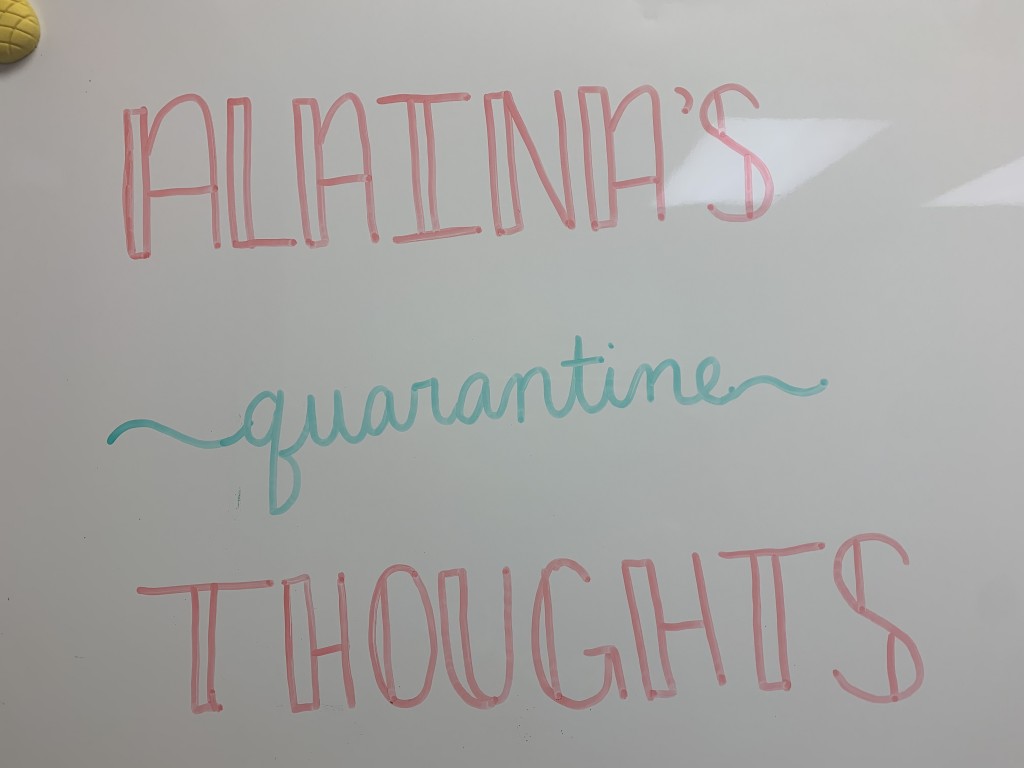 ALAINA'S
quarantine
THOUGHTS